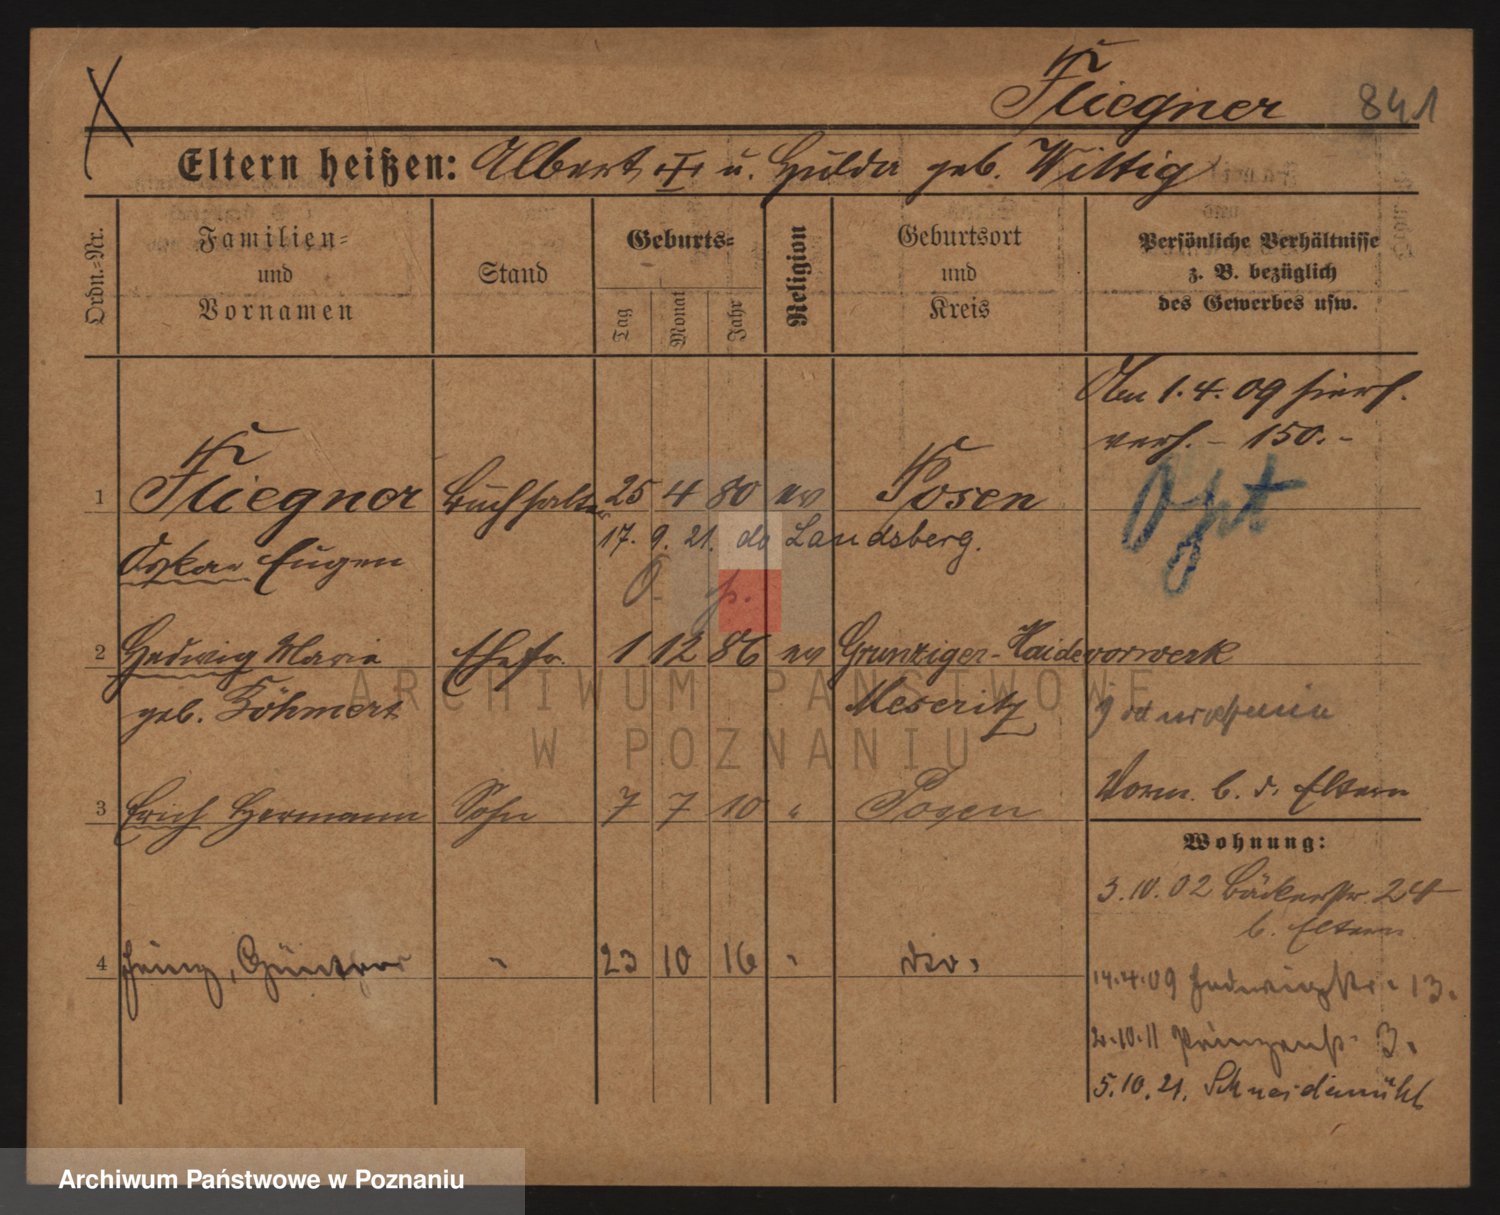 Fliegner 841
Eltern heißen: Albert u. Hulda geb. Wittig
Ordn.-Nr.
Familien- und Vornamen
Stand
Geburts-
Tag Monat Jahr
Religion
Geburtsort und Kreis
Persönliche Verhältnisse z. B. bezüglich des Gewerbes usw.
Am 1.4.09 hierf.
verh. - 150.-
1 Fliegner Buchhalter 25 4 80 ev Posen
Opt
Oskar Eugen 17. 9. 21. do Landsberg.
O. p.
2 Hedwig Marie Ehefr. 1 12 86 ev Grunziger-Haidevorwerk
geb. Böhmert Meseritz
3 Erich Hermann Sohn 7 7 10 " Posen
Vorm. b. d. Eltern
Wohnung:
3.10.02 Bäckerstr. 24
b. Eltern
4 Heinz, Günther " 23 10 16 " do.
14.4.09 Hedwigstr. 13.
2.10.11 Prinzenstr. 3.
5.10.21. Schneidemühl
ARCHIWUM PAŃSTWOWE
W POZNANIU
Archiwum Państwowe w Poznaniu